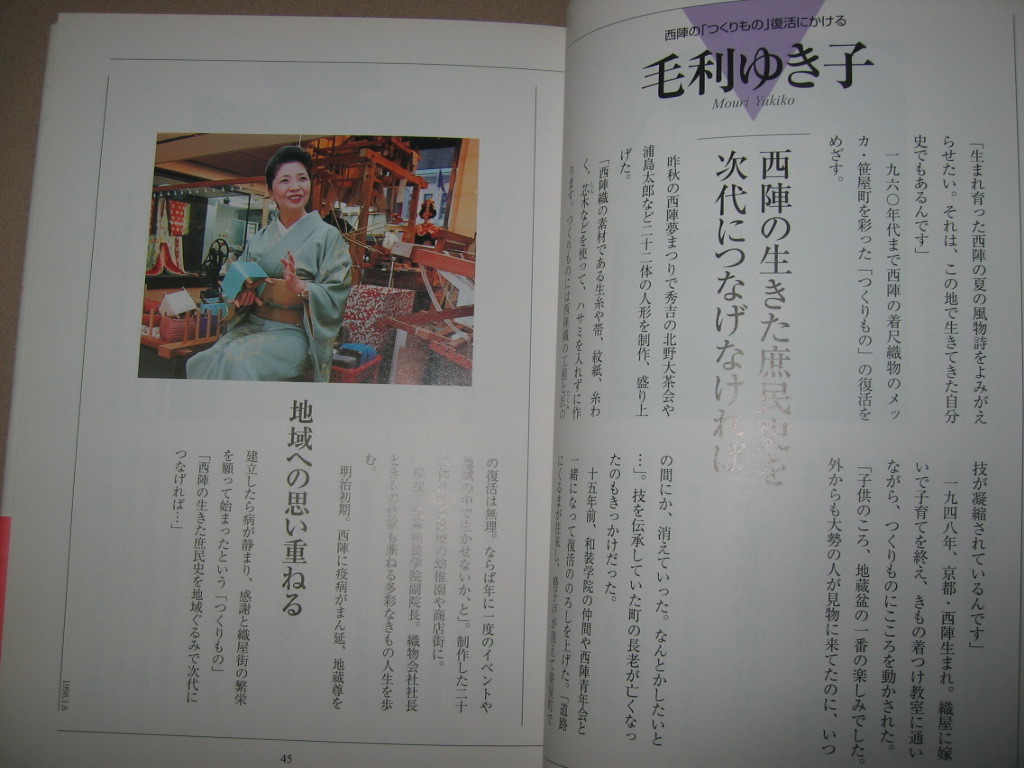 西陣の「つくりもの」復活にかける
毛利ゆき子
Mouri Yukiko
「生まれ育った西陣の夏の風物詩をよみがえ
らせたい。それは、この地で生きてきた自分
史でもあるんです」
一九六〇年代まで西陣の着尺織物のメッ
カ・笹屋町を彩った「つくりもの」の復活を
めざす。
西陣の生きた庶民史を
次代につなげなければ
昨秋の西陣夢まつりで秀吉の北野大茶会や
浦島太郎など二十二体の人形を制作、盛り上
げた。
「西陣織の素材である生糸や帯、紋紙、糸わ
く、芯木などを使って、ハサミを入れずに作
ります。つくりものには西陣織の
技が凝縮されているんです」
一九四八年、京都・西陣生まれ。織屋に嫁
いで子育てを終え、きもの着つけ教室に通い
ながら、つくりものにこころを動かされた。
「子供のころ、地蔵盆の一番の楽しみでした。
外からも大勢の人が見物に来てたのに、いつ
の間にか、消えていった。なんとかしたいと
…」。技を伝承していた町の長老が亡くなっ
たのもきっかけだった。
十五年前、和装学院の仲間や西陣青年会と
一緒になって復活ののろしを上げた。「道路
にくるまが往来し、
の復活は無理。ならば年に一度のイベントや
地域の中で生かせないか、と」。制作した二十
の幼稚園や商店街に。
学院副院長。織物会社社長
ときもの作家も兼ねる多彩なきもの人生を歩
む。
地域への思い重ねる
明治初期。西陣に疫病がまん延、地蔵尊を
建立したら病が静まり、感謝と織屋街の繁栄
を願って始まったという「つくりもの」
「西陣の生きた庶民史を地域ぐるみで次代に
つなげれば…」
1998.1.6
45